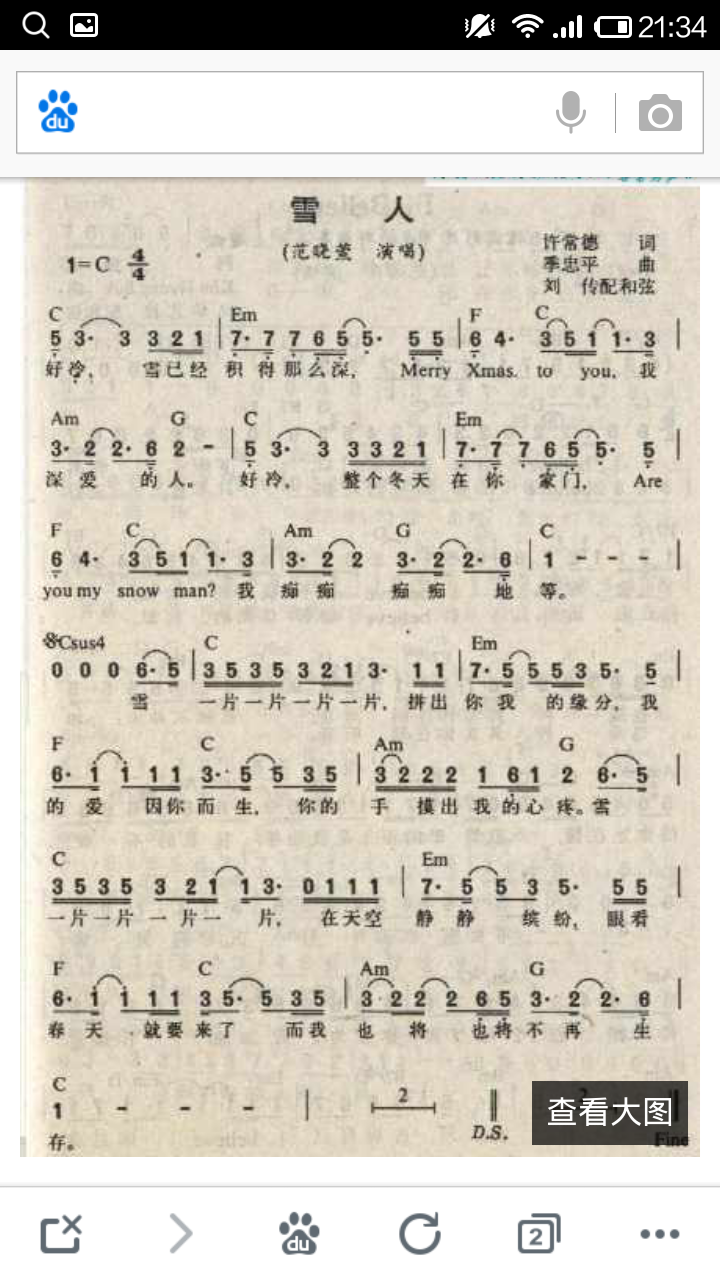 21:34
du
雪 人
(范晓萱 演唱)
许常德 词
1=C 4/4
季忠平 曲
刘 传配和弦
C Em F C
5 3· 3 3 2 1 | 7· 7 7 6 5 5· 5 5 | 6 4· 3 5 1 1· 3 |
好冷, 雪已经 积 得那么深, Merry Xmas. to you, 我
Am G C Em
3· 2 2· 6 2 - | 5 3· 3 3 3 2 1 | 7· 7 7 6 5 5· 5 |
深 爱 的人。 好冷, 整个冬天 在 你 家门, Are
F C Am G C
6 4· 3 5 1 1· 3 | 3· 2 2 3· 2 2· 6 | 1 - - - |
you my snow man? 我 痴 痴 痴 痴 地 等。
Csus4 C Em
0 0 0 6· 5 | 3 5 3 5 3 2 1 3· 1 1 | 7· 5 5 5 3 5· 5 |
雪 一片一片一片一片, 拼出 你 我 的缘分, 我
F C Am G
6· 1 1 1 1 3· 5 5 3 5 | 3 2 2 2 1 6 1 2 6· 5 |
的 爱 因你而生, 你的 手 摸出我的心疼。雪
C Em
3 5 3 5 3 2 1 1 3· 0 1 1 1 | 7· 5 5 3 5· 5 5 |
一片一片 一 片一 片, 在天空 静 静 缤 纷, 眼看
F C Am G
6· 1 1 1 1 3 5· 5 3 5 | 3 2 2 2 6 5 3· 2 2· 6 |
春 天 就要来了 而我 也 将 也将不 再 生
C
1 - - - | 2
查看大图
D.S. Fine
存。
du
2